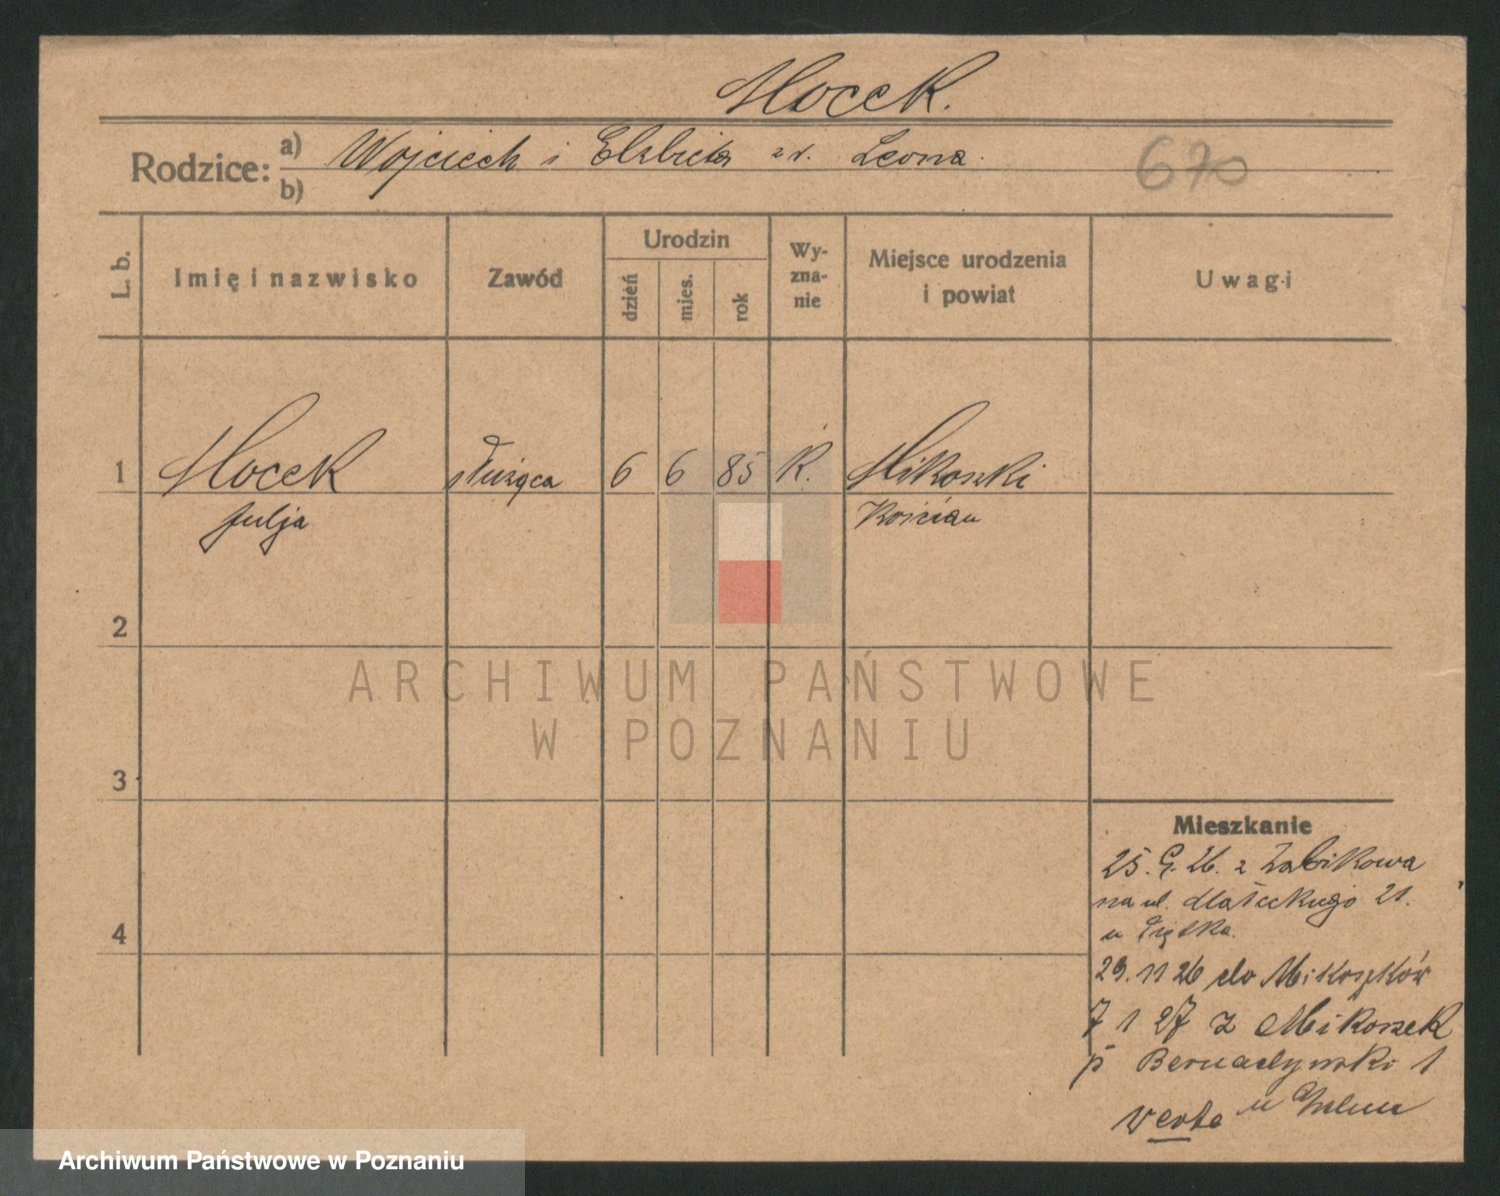 Mocek.
Rodzice: a) Wojciech i Elżbieta zd. Leona.
b)
670
L. b.
Imię i nazwisko
Zawód
Urodzin
dzień
mies.
rok
Wy-
zna-
nie
Miejsce urodzenia
i powiat
Uwagi
1 Mocek służąca 6 6 85 K. Mikoszki
Julja Kościan
2
3
4
Mieszkanie
25. 9. 26. z Żabikowa
na ul. Małeckiego 21.
u
29. 11 26 do Mikoszków
7 1 27 z Mikoszek
p Bernadyński 1
u
verte
ARCHIWUM PAŃSTWOWE
W POZNANIU
Archiwum Państwowe w Poznaniu